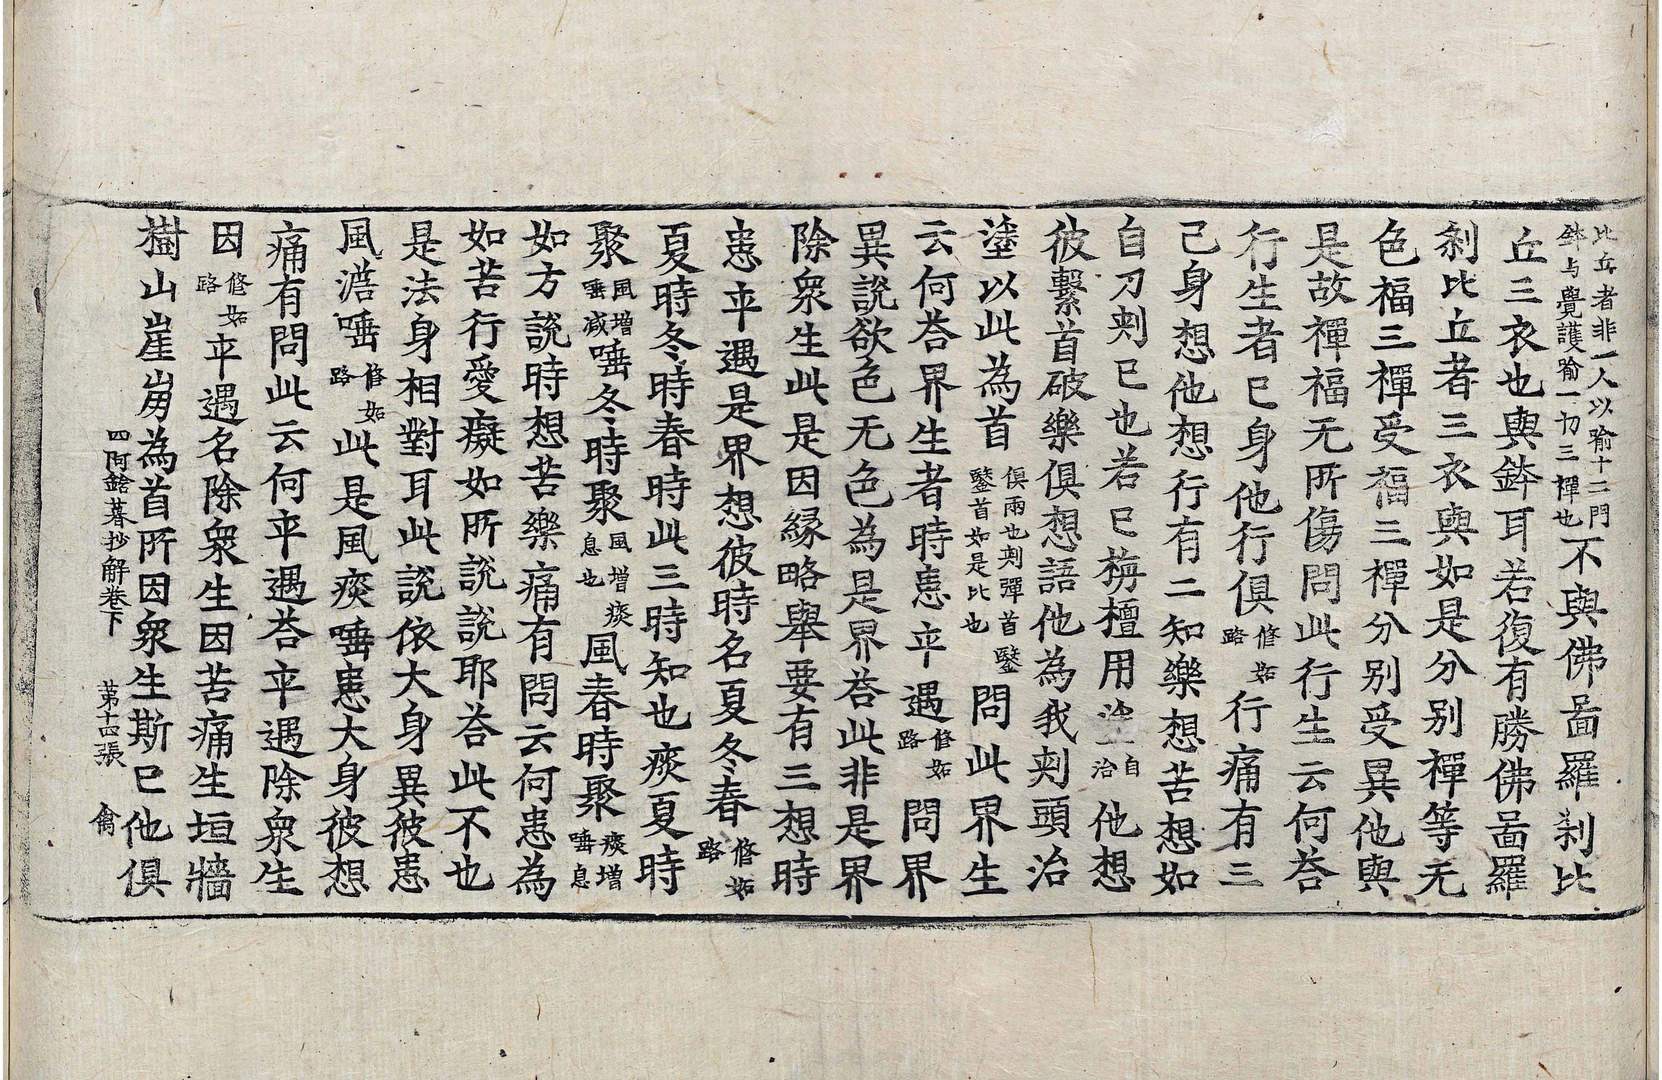 比丘者非一人以喻十二門鉢与覺護喻一切三禪也不與佛啚羅刹比
丘三衣也與鉢耳若復有勝佛啚羅
刹比丘者三衣與如是分別禪等无
色福三禪受福三禪分別受異他與
是故禪福无所傷問此行生云何荅
行生者已身他行俱修妬路行痛有三
己身想他想行有二知樂想苦想如
自刀剌已也若已栴檀用塗自治他想
彼繫首破樂俱想語他為我剌頭治
塗以此為首俱兩也剌彈首毉毉首如是比也問此界生
云何荅界生者時恚平遇修妬路問界
異說欲色无色為是界荅此非是界
除衆生此是因緣略舉要有三想時
恚平遇是界想彼時名夏冬春修妬路
夏時冬時春時此三時知也痰夏時
聚風增唾减唾冬時聚風增痰息也風春時聚痰增唾息
如方說時想苦樂痛有問云何恚為
如苦行愛癡如所說說耶荅此不也
是法身相對耳此說依大身異彼恚
風澹唾修妬路此是風痰唾恚大身彼想
痛有問此云何平遇荅平遇除衆生
因修妬路平遇名除衆生因苦痛生垣牆
樹山崖崩為首所因衆生斯已他俱
四阿鋡暮抄解卷下 第十四張 禽